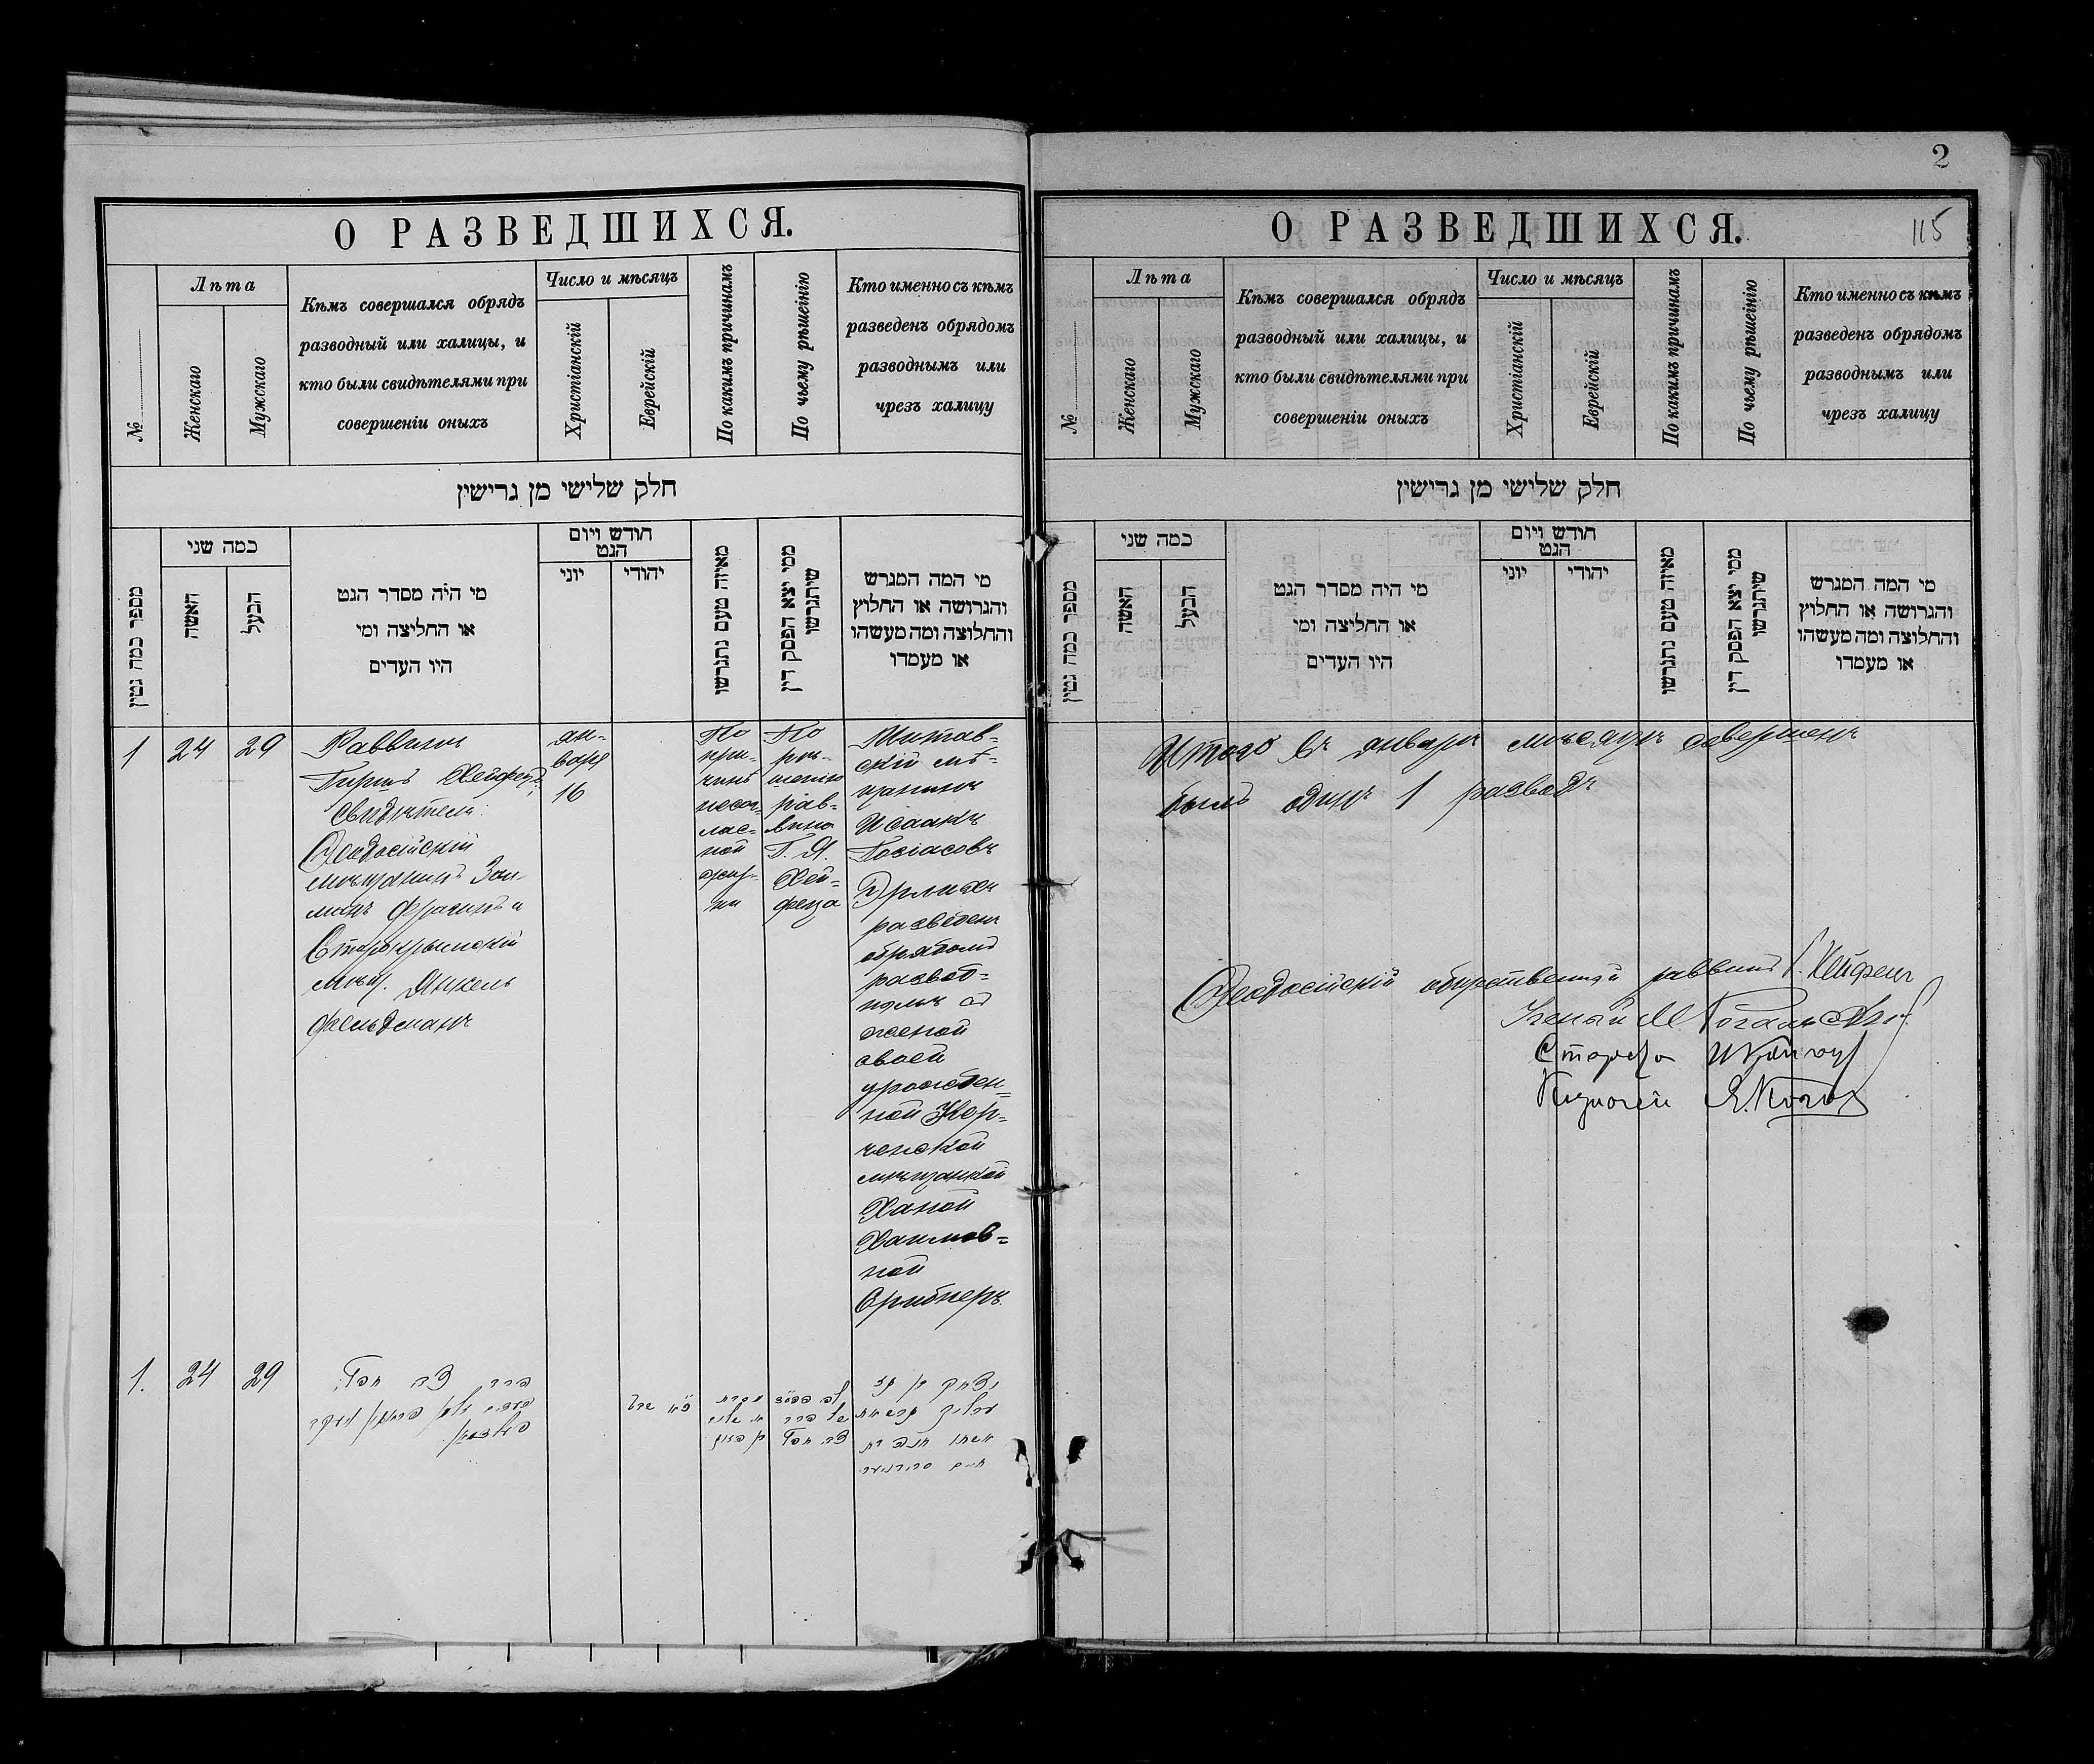 О РАЗВЕДШИХСЯ.
№
Лѣта
Женскаго
Мужскаго
Кѣмъ совершался обрядъ
разводный или халицы, и
кто были свидѣтелями при
совершеніи оныхъ
Число и мѣсяцъ
Христіанскій
Еврейскій
По какимъ причинамъ
По чьему рѣшеінію
Кто именно съ кѣмъ
разведенъ обрядомъ
разводнымъ или
чрезъ халицу
חלק שלישי מן גרישין
מספר כמה גטין
כמה שני
האשה
הבעל
מי היה מסדר הגט
או החליצה ומי
היו העדים
חודש ויום
הגט
יוני
יהודי
מאיזה טעם נתגרשו
ממי יצא הפסק דין
שיתגרשו
מי המה המגרש
והגרושה או החלוץ
והחלוצה ומה מעשהו
או מעמדו
1
24
29
Раввинъ
Гиршъ Хейфецъ
Свидѣтели:
Ѳеодосійскій
мѣщанинъ Зал-
манъ Фрагинъ и
Старокрымскій
мѣщ. Янкель
Фельдманъ
ян-
варя
16
По
при-
чинѣ
несог-
лас-
ной
жиз-
ни
По
рѣ-
шенію
рав-
вина
Г. Я.
Хей-
феца
Митав-
скій мѣ-
щанинъ
Исаакъ
Эрлихъ
разведенъ
обрядомъ
развод-
нымъ съ
женой
своей
урожден-
ной Кер-
ченской
мѣщанкой
Ханой
Хаимов-
ной
1.
24
29
2
О РАЗВЕДШИХСЯ.
115
№
Лѣта
Женскаго
Мужскаго
Кѣмъ совершался обрядъ
разводный или халицы, и
кто были свидѣтелями при
совершеніи оныхъ
Число и мѣсяцъ
Христіанскій
Еврейскій
По какимъ причинамъ
По чьему рѣшеінію
Кто именно съ кѣмъ
разведенъ обрядомъ
разводнымъ или
чрезъ халицу
חלק שלישי מן גרישין
מספר כמה גטין
כמה שני
האשה
הבעל
מי היה מסדר הגט
או החליצה ומי
היו העדים
חודש ויום
הגט
יוני
יהודי
מאיזה טעם נתגרשו
ממי יצא הפסק דין
שיתגרשו
מי המה המגרש
והגרושה או החלוץ
והחלוצה ומה מעשהו
או מעמדו
Итого въ январѣ мѣсяцѣ совершенъ
былъ одинъ 1 разводъ
Ѳеодосійскій общественный раввинъ Г. Хейфецъ
Ученый М
Староста
Казначей Я. Коган